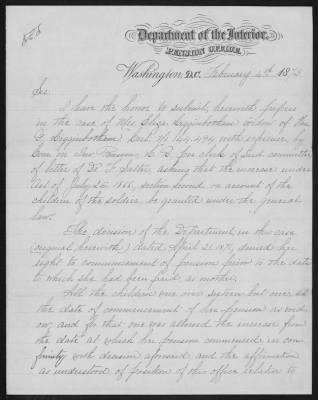 Department of the Interior,
PENSION OFFICE,
Washington, D.C., February 4th 1873
Sir:
I have the honor to submit, herewith, papers
in the case of Mrs Eliza Higginbotham widow of
G. Higginbotham Cert. No 144.494 with reference, by
Com. on Inv. Pensions, H. R. for clerk of said committee
of letter of D. F. Salter, asking that the increase under
Act of July 25. 1866, section second, on account of the
children of the soldier be granted under the general
law.
The decision of the Department, in this case
(original herewith) dated April 21. 1871, denied her
right to commencement of pension prior to the date
to which she had been paid as mother.
All the children were over sixteen but one at
the date of commencement of her pension as wid-
ow, and for that one was allowed the increase from
the date at which her pension commenced, in con-
formity with decision aforesaid, and the affirmation
as understood of position of this office relative to